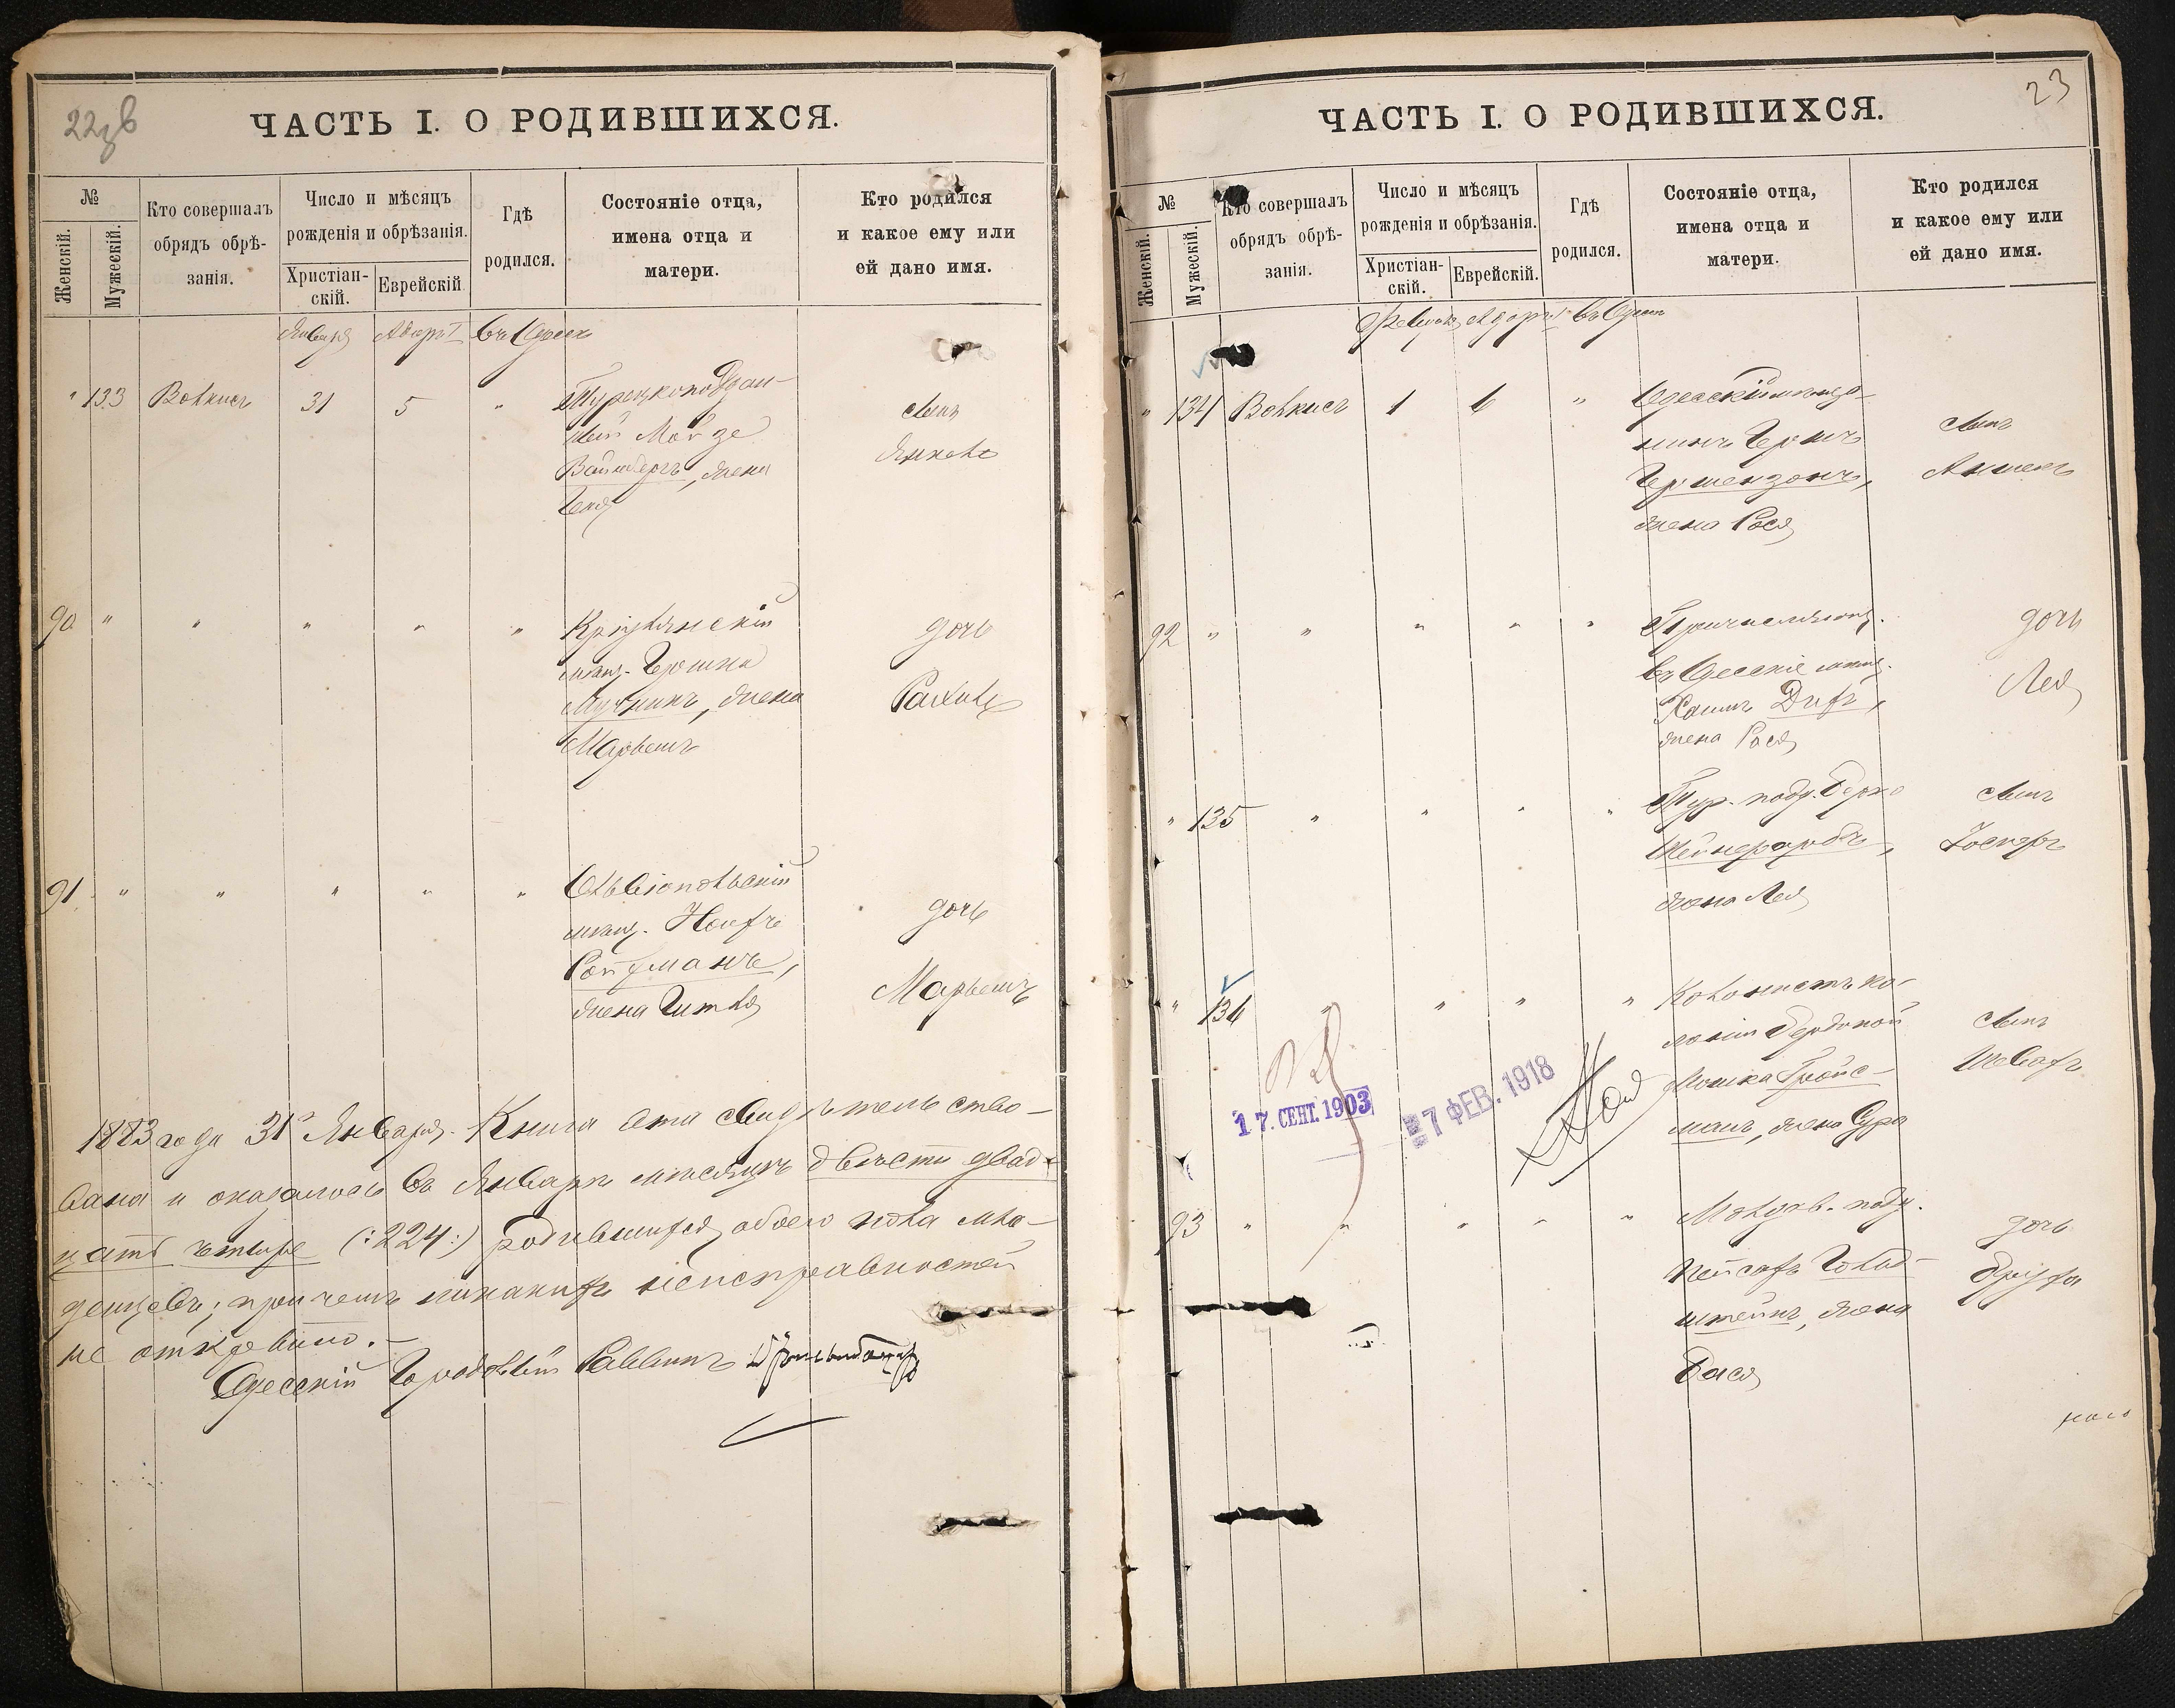 22об
ЧАСТЬ I. О РОДИВШИХСЯ.
№
Женскій.
Мужескій.
Кто совершалъ
обрядъ обрѣ-
занія.
Число и мѣсяцъ
рожденія и обрѣзанія.
Христіан-
скій.
Еврейскій
Гдѣ
родился.
Состояніе отца,
имена отца и
матери.
Кто родился
и какое ему или
ей дано имя.
Января Адаръ I въ Одессѣ
" 133 Волкисъ 31 5 "
Турецкоподдан-
ный Мойзе
Вайнбергъ, жена
Геня
сынъ
Янкель
90 " " " " "
Криулянскій
мѣщ. Гершка
Мучникъ, жена
Марьемъ
дочь
Рахиль
91 " " " " "
Ольвіопольскій
мѣщ. Нойхъ
Ройтманъ,
жена Гитля
дочь
Марьемъ
1883 года 31 Января. Книга эта свидѣтельство-
вана и оказалось въ Январѣ мѣсяцѣ двѣсти двад-
цать четыре (:224:) родившихся обоего пола мла-
денцевъ; при чемъ никакихъ неисправностей
не открыто.-
Одесскій Городовый Раввинъ
23
ЧАСТЬ I. О РОДИВШИХСЯ.
№
Женскій.
Мужескій.
Кто совершалъ
обрядъ обрѣ-
занія.
Число и мѣсяцъ
рожденія и обрѣзанія.
Христіан-
скій.
Еврейскій.
Гдѣ
родился.
Состояніе отца,
имена отца и
матери.
Кто родился
и какое ему или
ей дано имя.
Февраля Адаръ I въ Одессѣ
" 134 Волкисъ 1 6 "
Одесскій мѣща-
нинъ Гершъ
Гершензонъ,
жена Рося
сынъ
Аншель
92 " " " " "
Причисляющ.
въ Одесскіе мѣщ.
Хаимъ Дихъ,
жена Рося
дочь
Лея
" 135 " " " "
Тур. подд. Берко
Шейнерарбъ,
жена Лея
сынъ
Іосифъ
" 136 " " " "
Колонистъ ко-
лоніи
Мошка Гройс-
манъ, жена Сура
сынъ
17. СЕНТ. 1903
7 ФЕВ. 1918
93 " " " " "
Молдав. подд.
Пейсахъ Гольд-
штейнъ, жена
Бася
дочь
Бруха